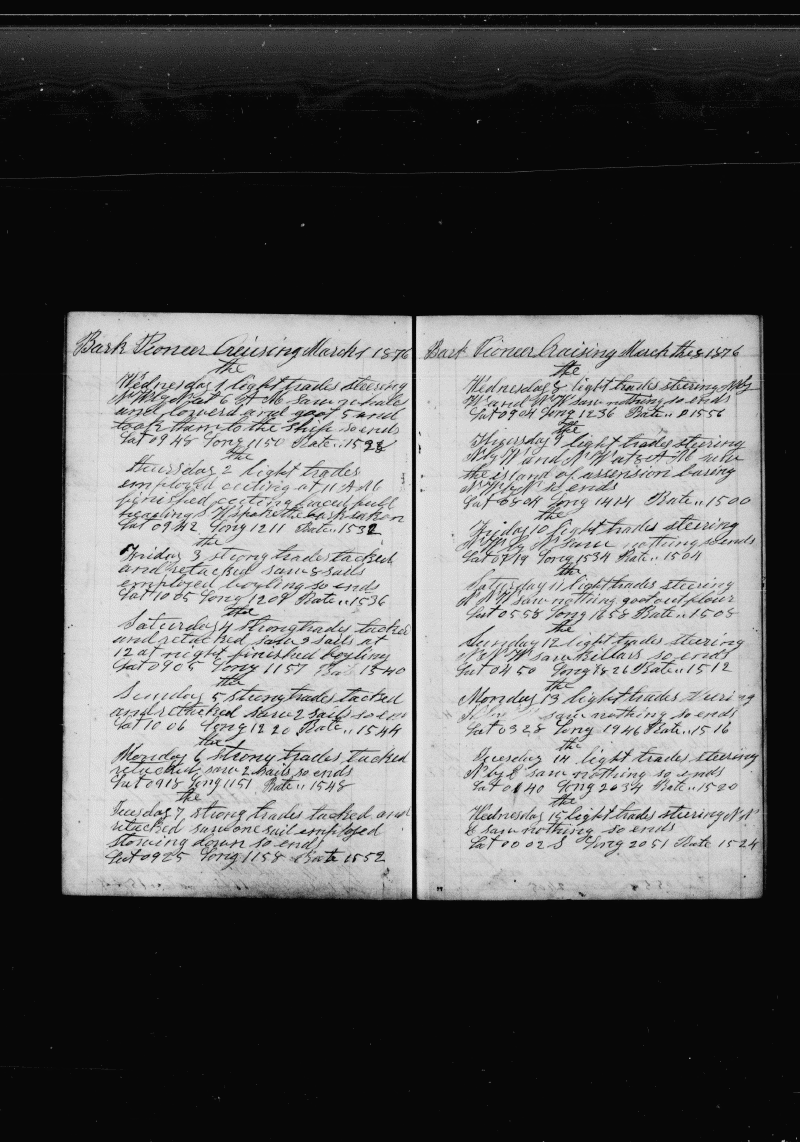 Bark Pioneer Cruising March 1 1876
the
Wednesday 1 light trades steering
at 6 A M saw whales
and lowerd and goot 5 and
took them to the ship so ends
Lat 09 48 Long 11 50 Rate .. 1528
the
Thursday 2 light trades
employed cutting at 11 A M
finished cutting
heading S W spoke the bark
Lat 09 42 Long 12 11 Rate .. 1532
the
Friday 3 strong trades tacked
and retacked saw 2 sails
employed boyling so ends
Lat 10 05 Long 12 09 Rate .. 1536
the
Saturday 4 strong trades tacked
and retacked saw 2 sails at
12 at night finished boyling
Lat 09 05 Long 11 57 Rate 1540
the
Sunday 5 strong trades tacked
and retacked saw 2 sails so en
Lat 10 06 Long 12 20 Rate .. 1544
the
Monday 6 strong trades tacked
retacked saw 2 sails so ends
Lat 09 18 Long 11 51 Rate .. 1548
the
Tuesday 7 strong trades tacked and
retacked saw one sail employed
stowing down so ends
Lat 09 25 Long 11 58 Rate 1552
Bark Pioneer Cruising March the 8 1876
the
Wednesday 8 light trades steering N W by
W and N W saw nothing so ends
Lat 09 04 Long 12 36 Rate .. 1556
the
Thursday 9 light trades steering
N by W and N W at 5 A M saw
the island of assension baring
ends
Lat 08 04 Long 14 14 Rate .. 1500
the
Friday 10 light trades steering
saw nothing so ends
Lat 07 19 Long 15 34 Rate .. 1504
the
Saturday 11 light trades steering
N W saw nothing goot out flour
Lat 05 58 Long 16 58 Rate .. 1508
the
Sunday 12 light trades steering
N W saw so ends
Lat 04 50 Long 18 26 Rate .. 1512
the
Monday 13 light trades steering
saw nothing so ends
Lat 03 28 Long 19 46 Rate .. 1516
the
Tuesday 14 light trades steering
N by E saw nothing so ends
Lat 01 40 Long 20 34 Rate .. 1520
the
Wednesday 15 light trades steering N N
E saw nothing so ends
Lat 00 02 S Long 20 51 Rate 1524